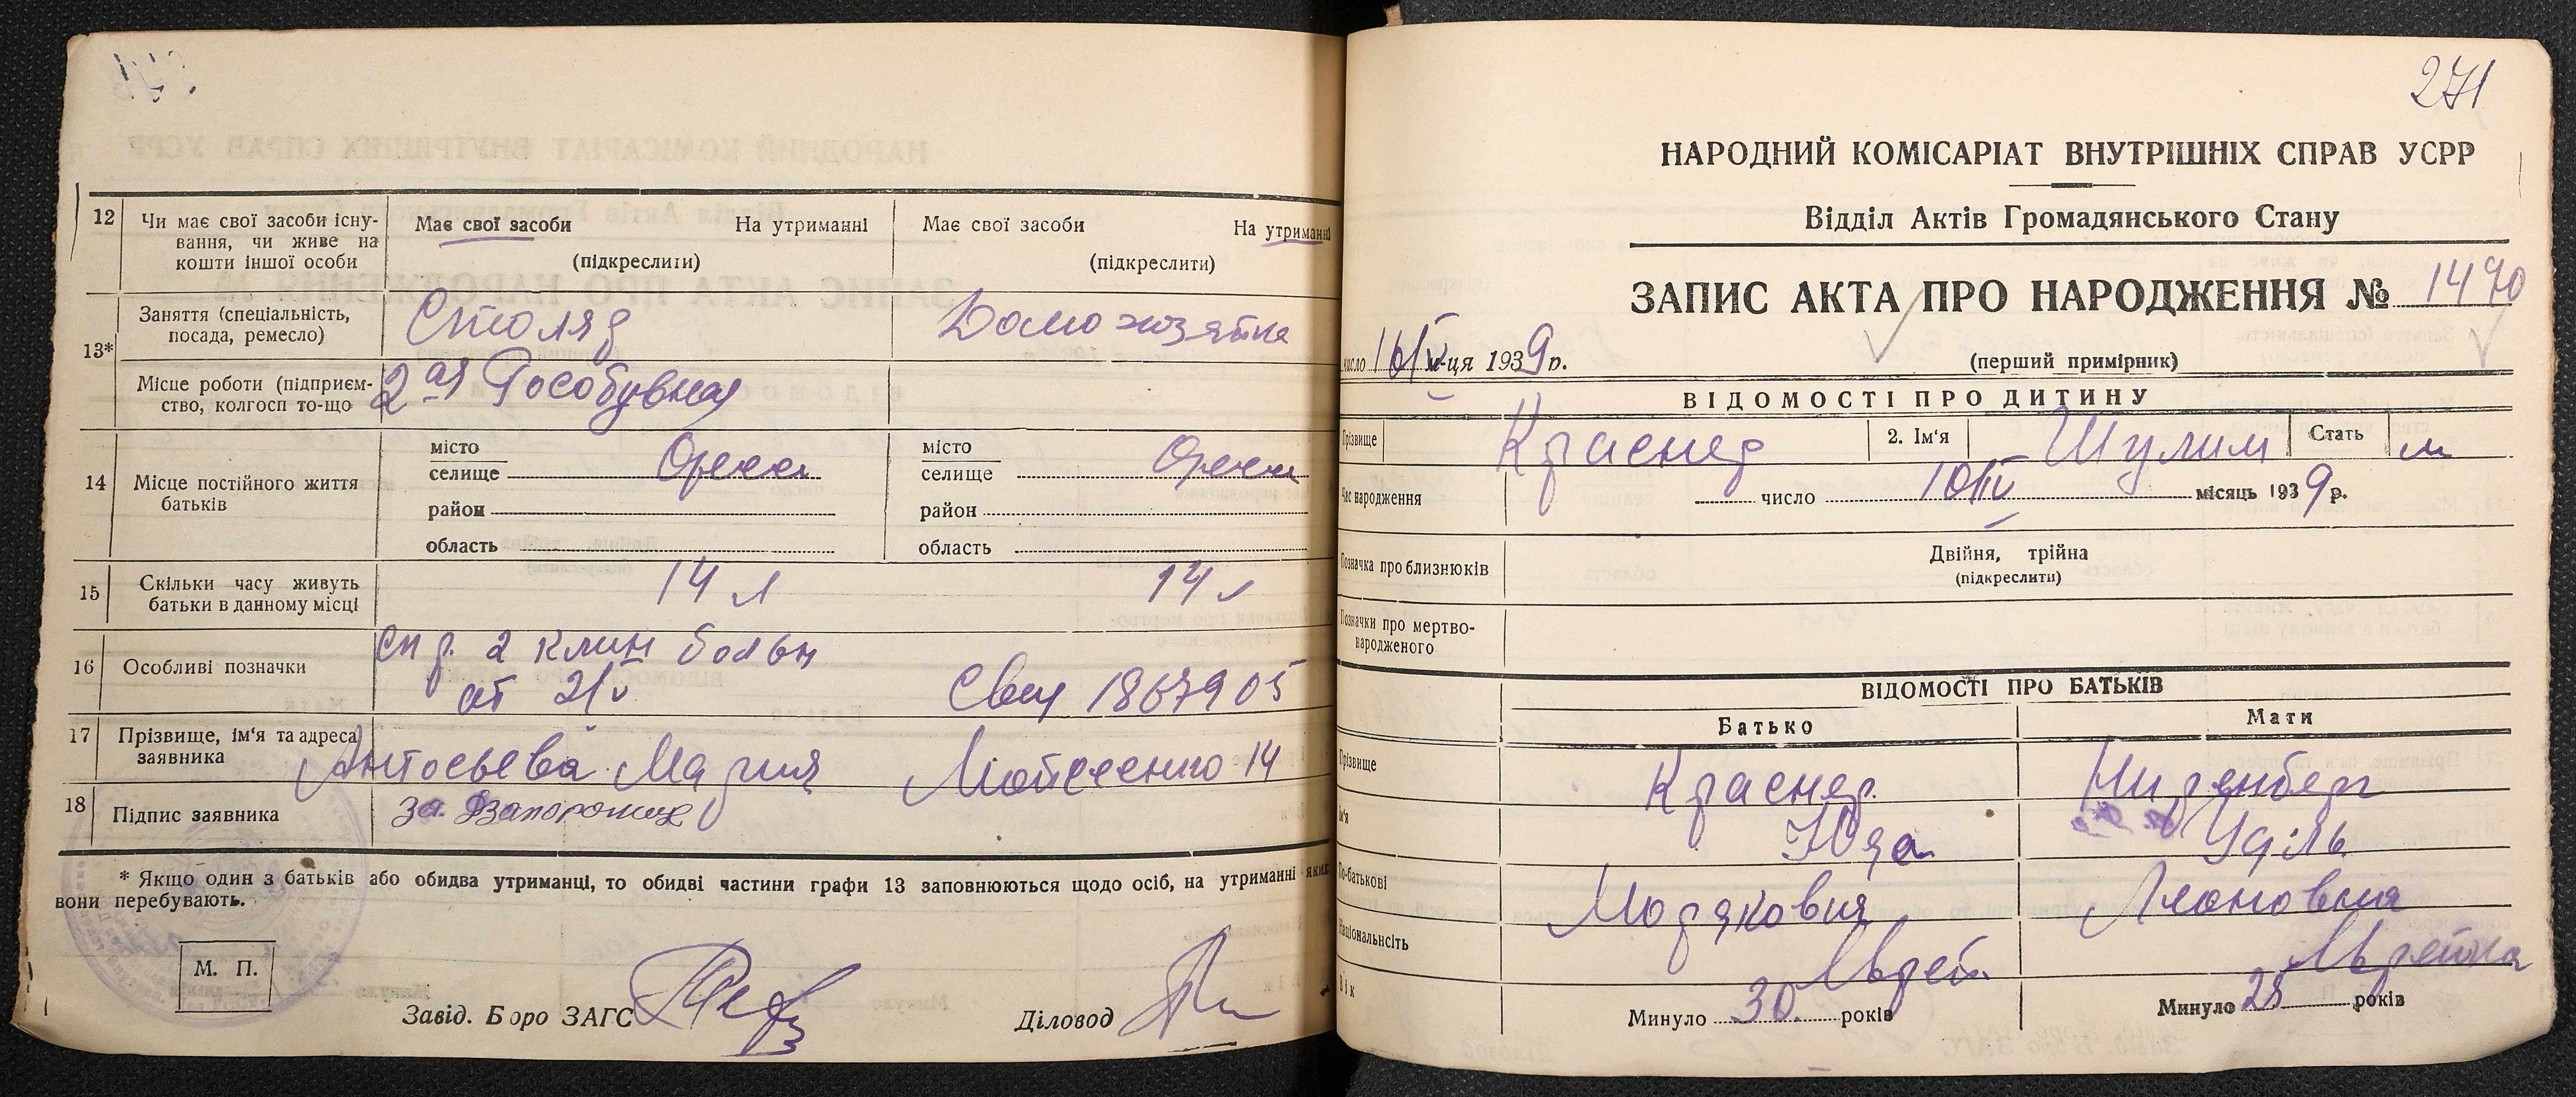 12 Чи має свої засоби існу-
вання, чи живе на
кошти іншої особи
Має свої засоби На утриманні
(підкреслити)
Має свої засоби На утриманні
(підкреслити)
13* Заняття (спеціальність,
посада, ремесло)
Столяр
Домохозяйка
Місце роботи (підприєм-
ство, колгосп то-що
2ая Гособувная
14 Місце постійного життя
батьків
місто
селище
район
область
місто
селище
район
область
15 Скільки часу живуть
батьки в данному місці
14 л
14 л
16 Особливі позначки
спр. 2 клин больн
от 21/V Свид 1867905
17 Прізвище, ім'я та адреса
заявника
Мария 14
18 Підпис заявника
за
* Якщо один з батьків або обидва утриманці, то обидві частини графи 13 заповнюються щодо осіб, на утриманні яких
вони перебувають.
М. П.
Завід. Бюро ЗАГС
Діловод
271
НАРОДНИЙ КОМІСАРІАТ ВНУТРІШНІХ СПРАВ УСРР
Відділ Актів Громадянського Стану
ЗАПИС АКТА ПРО НАРОДЖЕННЯ № 1470
число м-ця 1939 р.
(перший примірник)
ВІДОМОСТІ ПРО ДИТИНУ
Прізвище Краснер 2. Ім'я Шулим Стать м
Час народження
число 10/IV місяць 1939 р.
Позначка про близнюків
Двійня, трійна
(підкреслити)
Позначки про мертво-
народженого
ВІДОМОСТІ ПРО БАТЬКІВ
Батько Мати
Прізвище Краснер Ниренберг
Ім'я Юда Удль
По-батькові Мордкович
Національнсіть Яврей Яврейка
Вік
Минуло 30 років
Минуло років